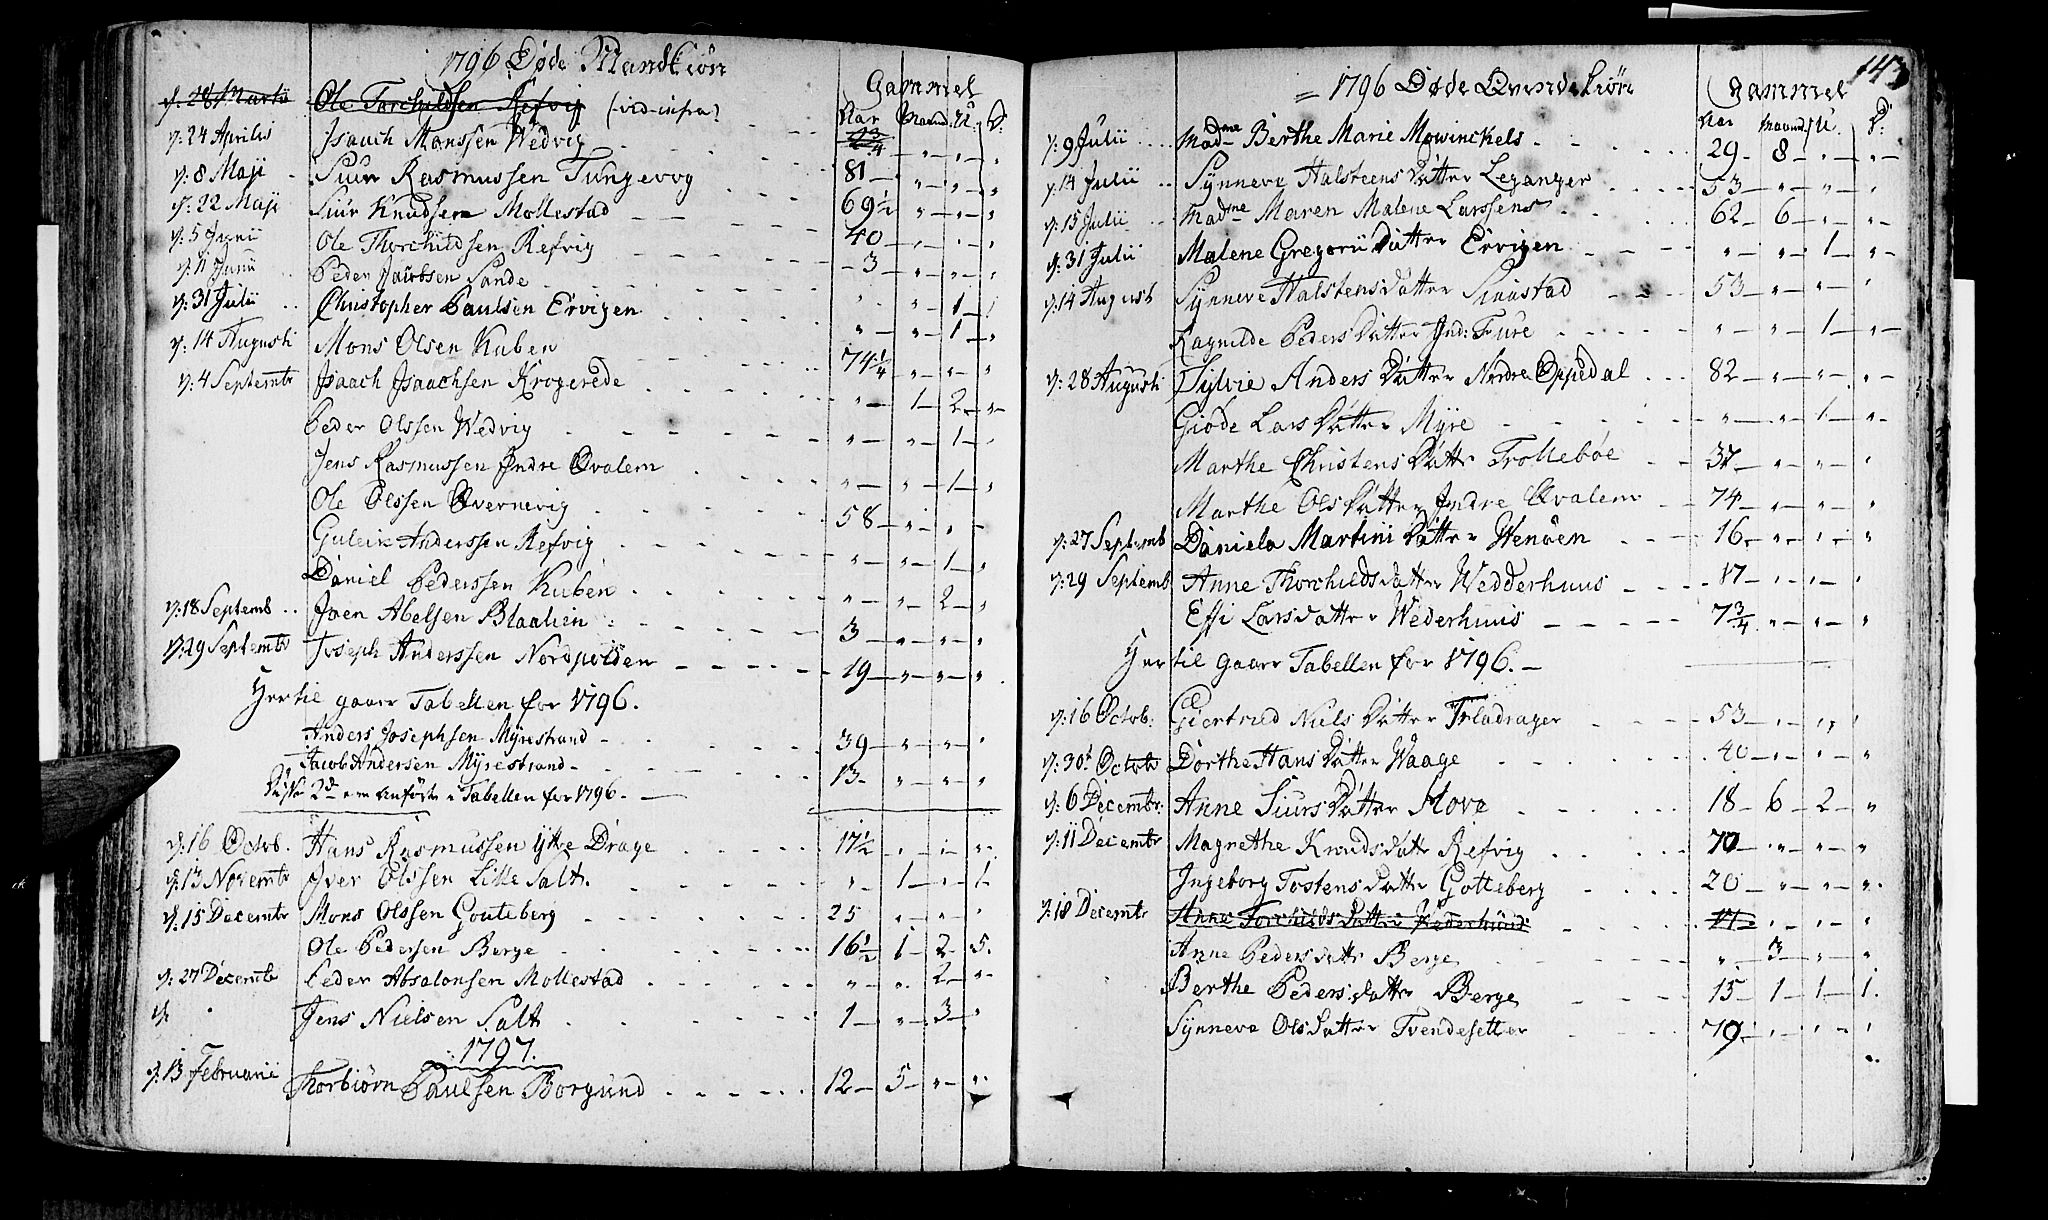 1796 Døde Mandkiön
Gammel
Aar Maand. U. D:
d: 28 Martii Ole Torchildsen Refvig (vid infra)
d: 24 Aprilis Isaach Monssen Wedvig
d: 8 Maji Siur Rasmussen Tungevog 81
d: 22 Maji Siur Knudsen Mollestad 69½
d: 5 Junii Ole Thorchildsen Refvig 40
d: 11 Junii Peder Jacobsen Sande 3
d: 31 Julii Christopher Paulsen Ervigen 1
d: 14 Augusti Mons Olsen Kuben 1
d: 4 Septembr Isaach Isaachsen Krogerede 74¼
Peder Olssen Wedvig 1 2
Jens Rasmussen Indre Qvalem 1
Ole Olssen Qvernevig 1
Guleik Anderssen Refvig 58
Daniel Pederssen Kuben 1
d: 18 Septemb Joen Abelsen Blaalien 2
d: 29 Septembr Joseph Anderssen Nordpolden 3
19
Hertil gaaer Tabellen for 1796.
Anders Josephsen Myrestrand 39
Jacob Andersen Myrestrand 13
Disse 2de ere anførte i Tabellen for 1796.
d: 16 Octob. Hans Rasmussen Ytre Drage 17½
d: 13 Novembr Iver Olssen Lille Salt. 1 1
d: 15 Decembr Mons Olssen Gouteberg 25
Ole Pedersen Berge 16½ 1 2 5.
d: 27 Decembr Peder Absalonsen Mollestad 2
d. Jens Nielsen Salt 1 3
1797.
d: 13 Februarii Thorbiörn Paulsen Borgund 12 5
143
1796 Døde Qvindekiön
Gammel
Aar Maaned U. D:
d: 9 Julii Madme Berthe Marie Mowinckels 29 8
d: 14 Julii Synneve Halsteens Datter Leganger 53
d: 15 Julii Madme Maren Malene Larssens 62 6
d: 31 Julii Malene Gregorii Datter Ervigen 1
d: 14 August Synneve Halstensdatter 53
Ragnilde Peders Datter Ind: Fure 1
d: 28 Augusti Sylvie Anders Datter Nordre Oppedal 82
Giøde Lars Datter Myre 1
Marthe Christens Datter Trollebøe 37
Marthe Ols Datter Indre Qvalem 74
d: 27 Septemb Daniela Martini Datter Wenöen 16
d: 29 Septemb Anne Thorchildsdatter Wedderhuus 17
Effi Larsdatter Wederhuus 7¾
Hertil gaaer Tabellen for 1796.
d: 16 Octob: Giertrud Niels Datter Frladrager 53
d: 30t Octob Dorthe Hans Datter Waage 40
d: 6 Decembr. Anne Siurs Datter Hove 18 6 2
d: 11 Decembr Magrethe Knuds datter Refvig 70
Ingeborg Tostens Datter Gotteberg 20
d: 18 Decembr Anne Torchilds Datter Vederhuus
Anne Peders datter Berge 3
Berthe Peders datter Berge 15 1 1 1.
Synneve Olsdatter Tvendesetter 79